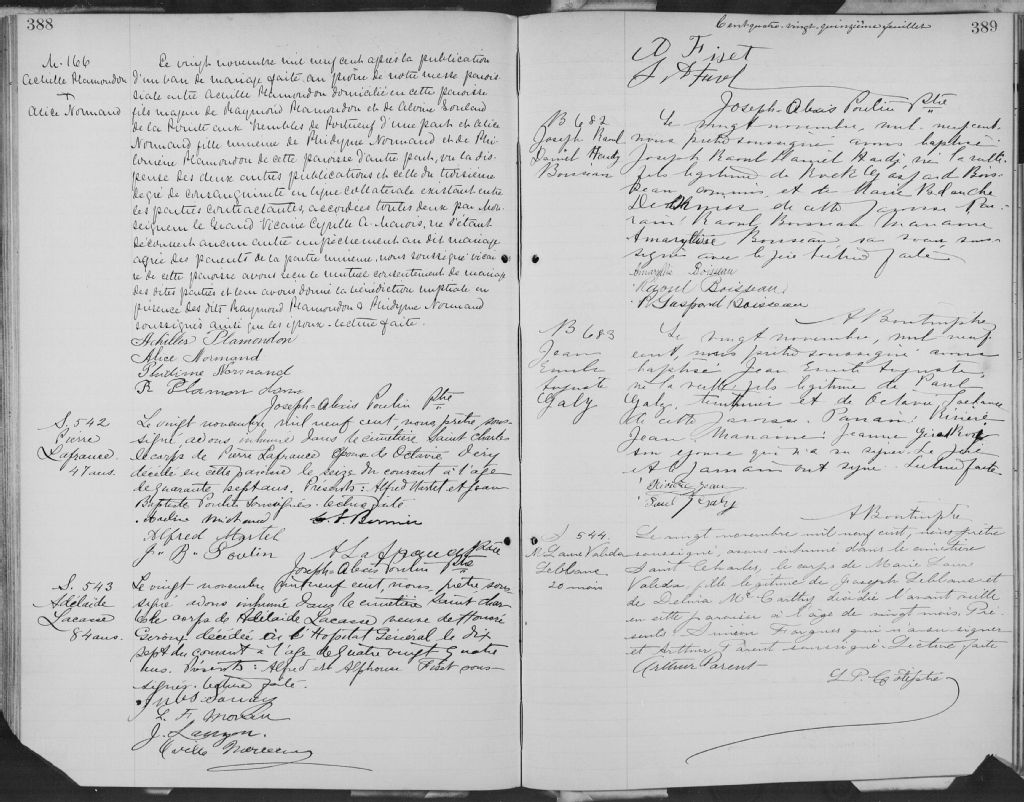 388
M. 166
Achille Plamondon
&
Alice Normand
Le vingt novembre mil neuf cent après la publication
d'un ban de mariage faite au prône de notre messe parois-
siale entre Achille Plamondon domicilié en cette paroisse
fils majeur de Raymond Plamondon et de
de la Pointe aux Trembles de Portneuf d'une part, et Alice
Normand fille mineure de Phidyme Normand et de Phi-
lomène Plamondon de cette paroisse d'autre part, vu la dis-
pense des deux autres publications et celle du troisième
degré de consanguinité en ligne collatérale existant entre
les parties contractantes, accordées toutes deux par Mon-
seigneur le Grand Vicaire Cyrille A. Marois, ne s'étant
découvert aucun autre empêchement au dit mariage
agréé des parents de la partie mineure, nous soussigné vicai-
re de cette paroisse avons reçu le mutuel consentement de mariage
des dites parties et leur avons donné la bénédiction nuptiale en
présence des dits Raymond Plamondon & Phidyme Normand
soussignés ainsi que les époux. Lecture faite.
Achilles Plamondon
Alice Normand
Phidime Normand
R Plamondon
Joseph-Alexis Poulin Ptre
S. 542
Pierre
Lafrance
47 ans.
Le vingt novembre mil neuf cent, nous prêtre sous-
signé, avons inhumé dans le cimetière Saint Charles
le corps de Pierre Lafrance époux de Octavie Déry
décédé en cette paroisse le seize du courant à l'âge
de quarante sept ans. Présents: Alfred Martel et Jean
Baptiste Poulin soussignés. Lecture faite
Michaud
Bernier
Alfred Martel
J. B. Poulin
Joseph Alexis Poulin Ptre
S. 543
Adélaïde
Lacasse
84 ans.
Le vingt novembre mil neuf cent, nous, prêtre sous-
signé avons inhumé dans le cimetière Saint Char-
les le corps de Adélaïde Lacasse veuve de
décédée à l'Hopital Général le dix
sept du courant à l'age de quatre vingt quatre
ans. Présents: Alfred et Alphonse Fiset sous-
signés. Lecture faite.
389
Cent quatre-vingt-quinzième feuillet
A Fiset
Joseph-Alexis Poulin Ptre
B 682
Joseph Raoul
Daniel Hardy
Boisseau
Le vingt novembre, mil neuf cent,
nous prêtre soussigné avons baptisé
Joseph Raoul Daniel Hardy, né la veille
fils légitime de Rock Gaspard Bois-
seau, commis et de Marie Blanche
de cette paroisse Par-
rain Raoul Boisseau Marraine
Boisseau, sous-
signés avec le père. Lecture faite
Boisseau
Raoul Boisseau
R. Gaspard Boisseau
B 683
Jean
Emile
Auguste
Galy
Le vingt novembre, mil neuf
cent, nous prêtre soussigné avons
baptisé Jean Emile Auguste,
né la veille, fils légitime de Paul
Galy, et de Octavie
de cette paroisse. Parrain: Rivière
Jean Marraine: Jeanne
son épouse qui n'a su signer. Le père
et le parrain ont signé. Lecture faite.
Rivière Jean
Paul Galy
S 544.
M. Laure Valéda
Leblanc
20 mois
Le vingt novembre mil neuf cent, nous prêtre
soussigné, avons inhumé dans le cimetière
Saint Charles, le corps de Marie Laure
Valéda, fille légitime de Joseph Leblanc et
de Délvina Mc Carthy décédée l'avant veille
en cette paroisse à l'âge de vingt mois. Pré-
sents Siméon Fargues qui n'a su signer
et Arthur Parent soussigné. Lecture faite
Arthur Parent